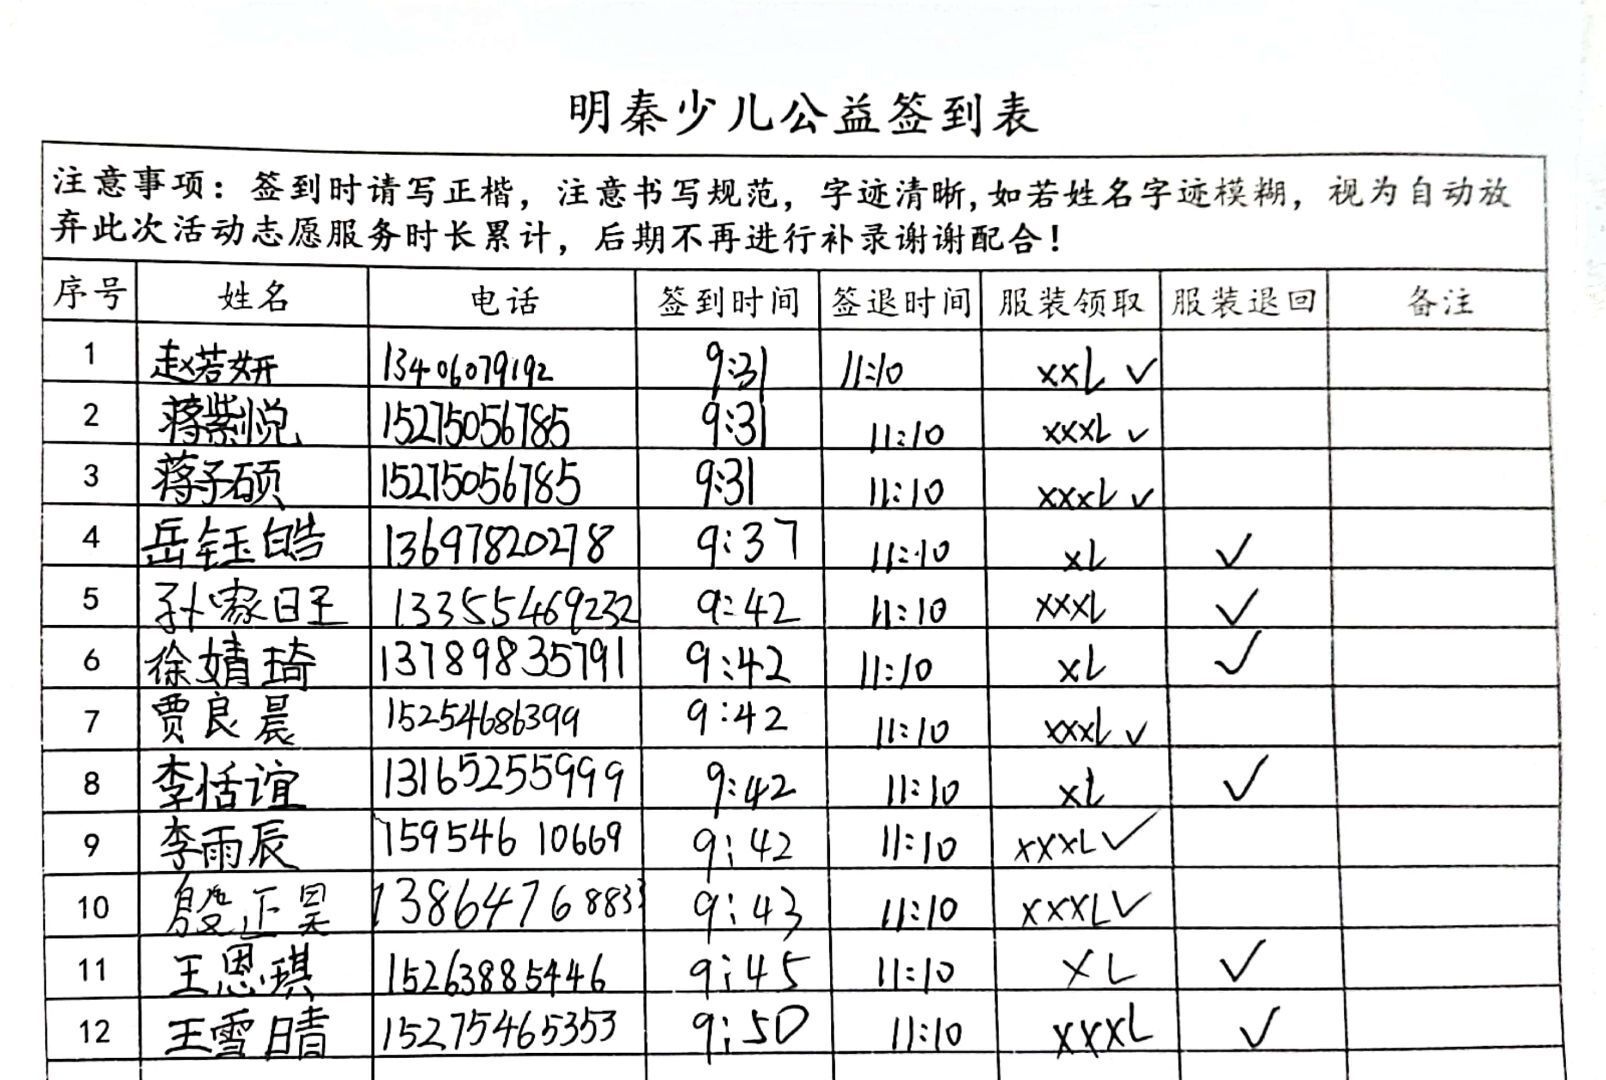 明秦少儿公益签到表
注意事项：签到时请写正楷，注意书写规范，字迹清晰，如若姓名字迹模糊，视为自动放
弃此次活动志愿服务时长累计，后期不再进行补录谢谢配合！
序号 姓名 电话 签到时间 签退时间 服装领取 服装退回 备注
1 赵若妍 13406079192 9:31 11:10 XXL ✓
2 蒋紫悦 15275056785 9:31 11:10 XXXL ✓
3 蒋子硕 15275056785 9:31 11:10 XXXL ✓
4 岳钰皓 13697820278 9:37 11:10 XL ✓
5 孙家玨 13355469232 9:42 11:10 XXXL ✓
6 徐婧琦 13789835791 9:42 11:10 XL ✓
7 贾良晨 15254686399 9:42 11:10 XXXL ✓
8 李恬谊 13165255999 9:42 11:10 XL ✓
9 李雨辰 15954610669 9:42 11:10 XXXL ✓
10 殷正昊 13864768833 9:43 11:10 XXXL ✓
11 王思琪 15263885446 9:45 11:10 XL ✓
12 王雪晴 15275465353 9:50 11:10 XXXL ✓